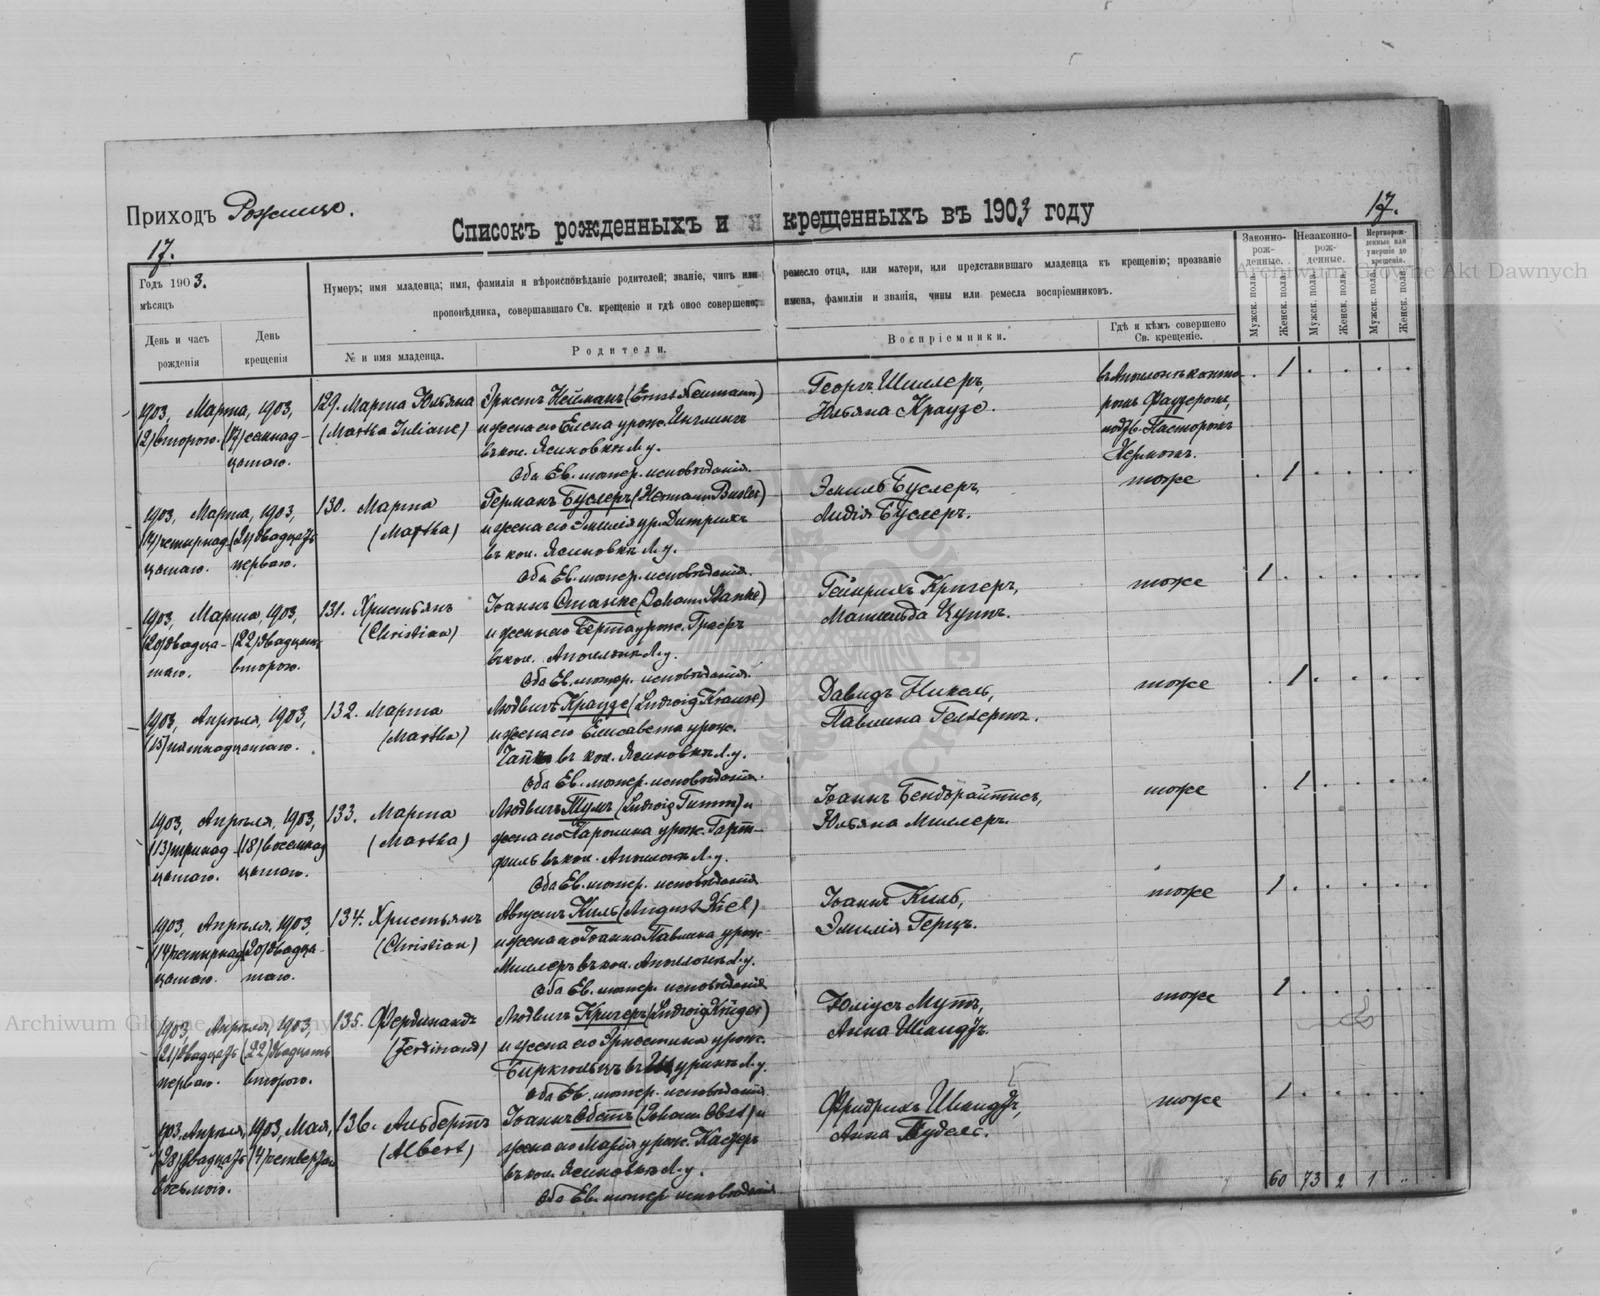 Приходъ Рожище.
17.
Списокъ рожденныхъ и крещенныхъ въ 1903 году
17.
Годъ 1903.
мѣсяцъ
День и часъ рожденія
День крещенія
Нумеръ; имя младенца; имя, фамилія и вѣроисповѣданіе родителей; званіе, чинъ или ремесло отца, или матери, или представившаго младенца къ крещенію; прозваніе
проповѣдника, совершавшаго Св. крещеніе и гдѣ оное совершено; имена, фамиліи и званія, чины или ремесла воспріемниковъ.
№ и имя младенца.
Родители.
Воспріемники.
Гдѣ и кѣмъ совершено Св. крещеніе.
Законно-рож-денные.
Незаконно-рож-денные.
Мертворож-денные или умершіе до крещенія.
Мужск. пола.
Женск. пола.
Мужск. пола.
Женск. пола.
Мужск. пола.
Женск. пола.
1903, Марта, 1903,
(2) второго.
129. Марта Юльяна
(Martha Juliane)
Эрнстъ Нейманъ (Ernst Neumann)
и жена его Елена урож.
въ кол. Ясиновкѣ Л. у.
Оба Ев. лютер. исповѣданія.
Георгъ Шиллеръ,
Юльяна Краузе.
1
1903, Марта, 1903,
(14) четырнад-цатаго.
(21) двадцать перваго.
130. Марта
(Martha)
Германъ Буслеръ (Hermann Busler)
и жена его Эмилія ур. Дитрихъ
въ кол. Ясиновкѣ Л. у.
Оба Ев. лютер. исповѣданія.
Эмиль Буслеръ,
Лидія Буслеръ.
тоже
1
1903, Марта, 1903,
(20) двадца-таго.
(22) двадцать второго.
131. Христьянъ
(Christian)
Іоаннъ Станке (Johann Stanke)
и жена его Берта урож.
въ кол. Аполонкѣ Л. у.
Оба Ев. лютер. исповѣданія.
Гейнрихъ Кригеръ,
Матильда Цуттъ.
тоже
1
1903, Апрѣля, 1903,
(15) пятнадцатаго.
132. Марта
(Martha)
Людвигъ Краузе (Ludwig Krause)
и жена его Елисавета урож.
въ кол. Ясиновкѣ Л. у.
Оба Ев. лютер. исповѣданія.
Давидъ Никель,
Павлина Гельертъ.
тоже
1
1903, Апрѣля, 1903,
(13) тринад-цатаго.
(18) восемнад-цатаго.
133. Марта
(Martha)
Людвигъ Тимъ (Ludwig Timm) и
жена его Каролина урож. Гарт-
въ кол. Аполонкѣ Л. у.
Оба Ев. лютер. исповѣданія
Іоаннъ
Юльяна Миллеръ.
тоже
1
1903, Апрѣля, 1903,
(14) четырнад-цатаго.
(20) двадца-таго.
134. Христьянъ
(Christian)
Августъ Киль (August Kiel)
и жена его Іоанна Павлина урож.
Миллеръ въ кол. Аполонкѣ Л. у.
Оба Ев. лютер. исповѣданія
Іоаннъ Киль,
Эмилія Герцъ.
тоже
1
1903, Апрѣля, 1903,
(21) двадцать перваго.
(22) двадцать второго.
135. Фердинандъ
(Ferdinand)
Людвигъ Кригеръ (Ludwig Krüger)
и жена его Эрнестина урож.
Биркгольцъ въ Л. у.
Оба Ев. лютер. исповѣданія
Юліусъ Мутъ,
Анна Шмидтъ.
тоже
1
1903, Апрѣля, 1903, Мая,
(28) двадцать восьмого.
136. Альбертъ
(Albert)
Іоаннъ Обстъ (Johann Obst) и
жена его Марія урож.
въ кол. Ясиновкѣ Л. у.
Оба Ев. лютер. исповѣданія
Фридрихъ Шмидтъ,
Анна
тоже
1
60 73 2 1
Archiwum Główne Akt Dawnych
Archiwum Główne Akt Dawnych